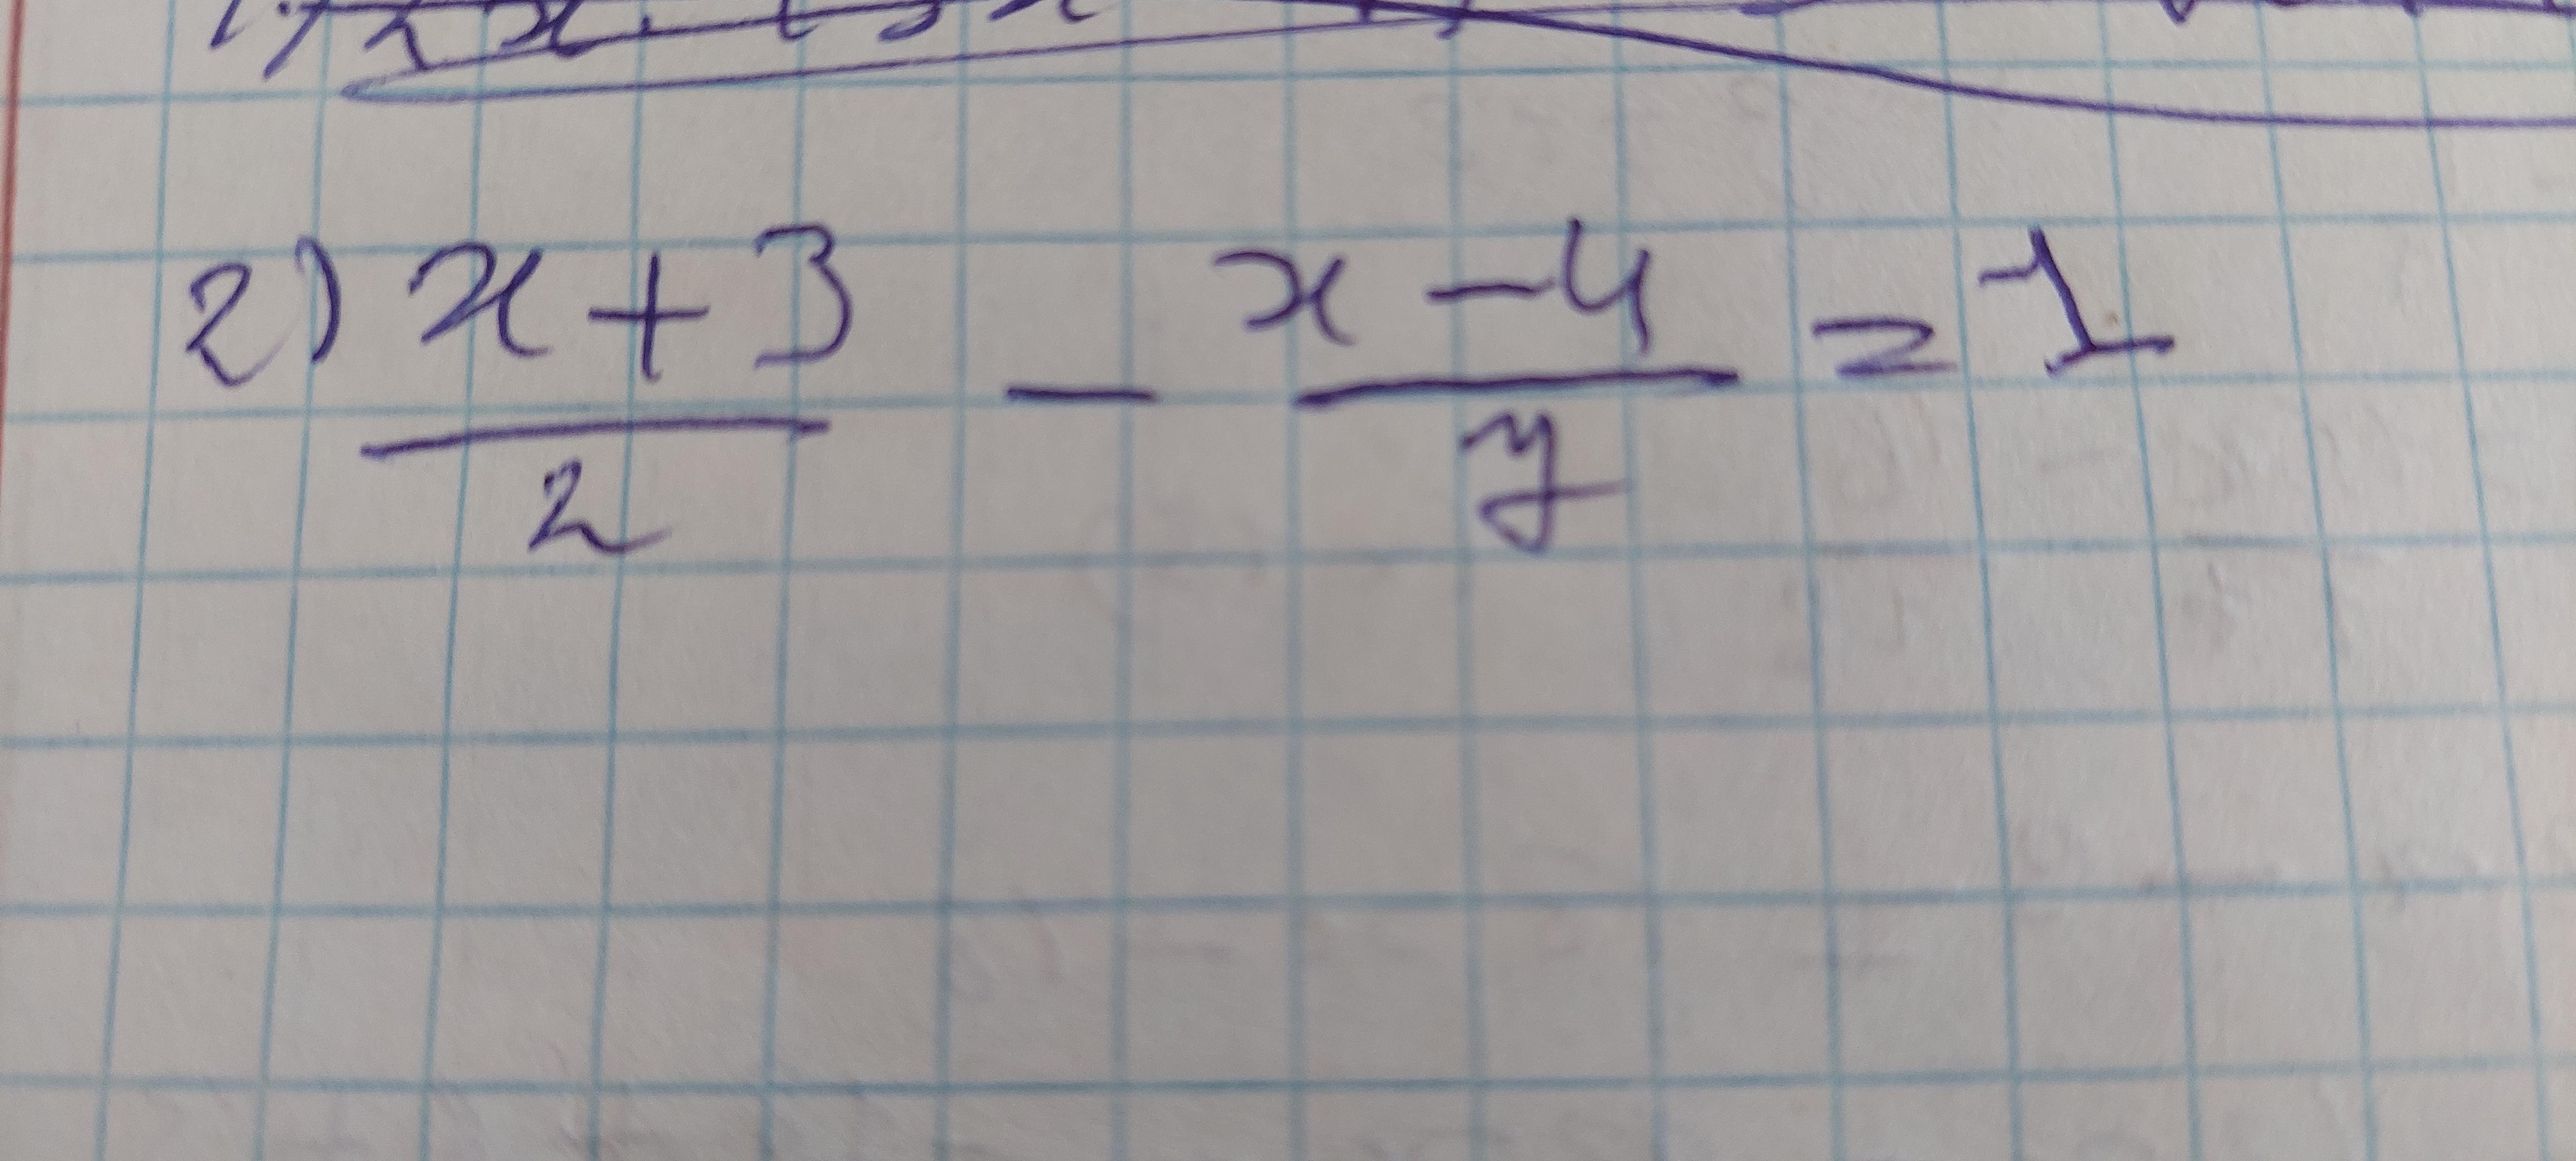 2) x + 3 / 2 - x - 4 / 7 = 1